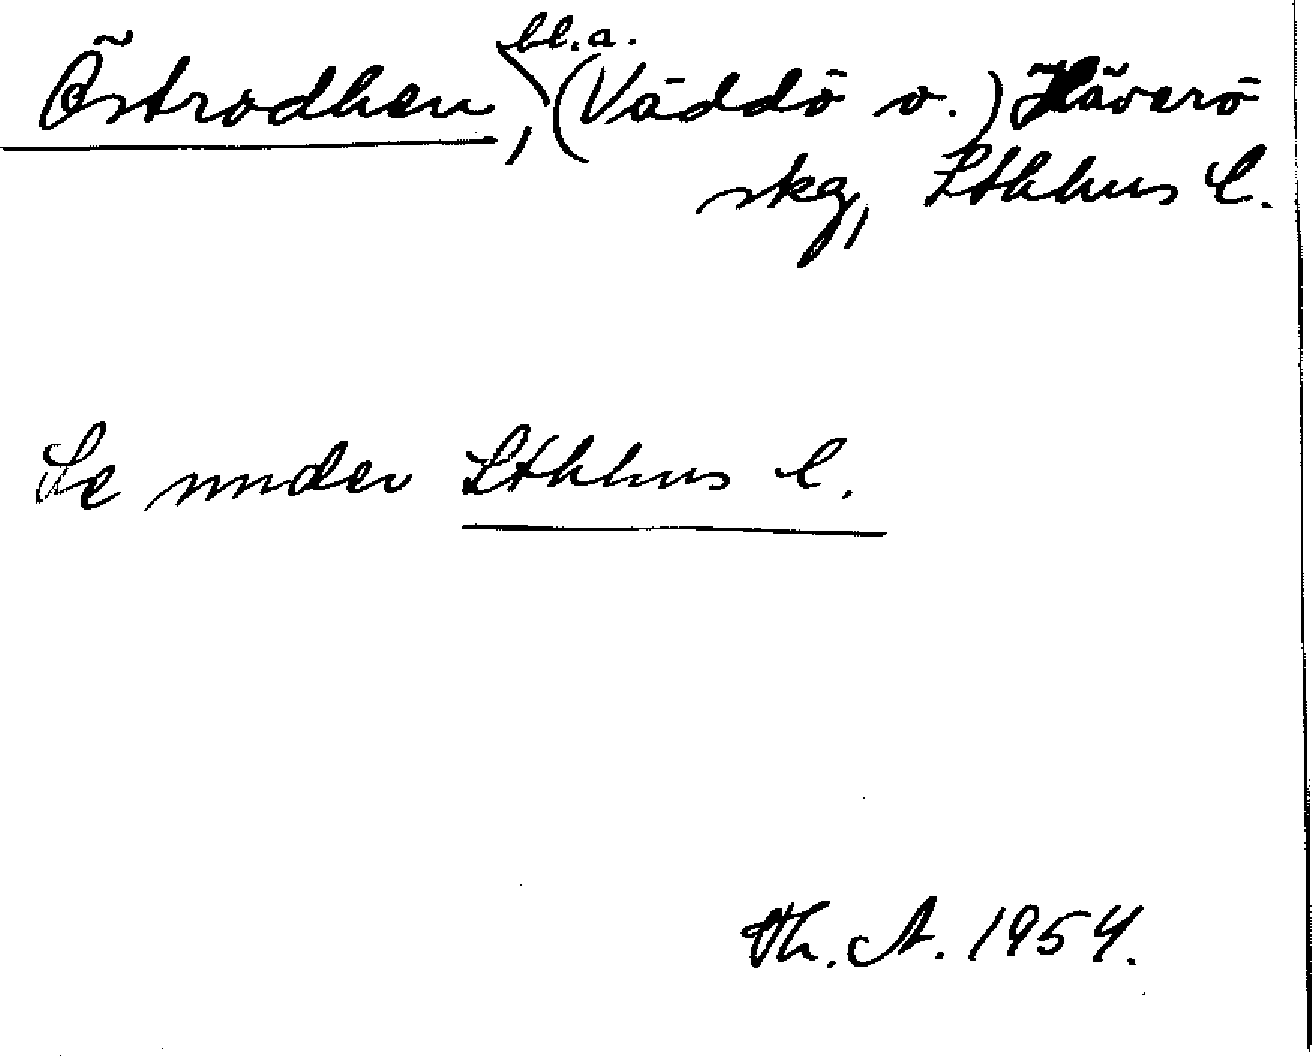 Östrodhen, bl.a. (Väddö o.) Häverö
skg, Sthhus C.
Se under Sthhus C.
Th. A. 1954.